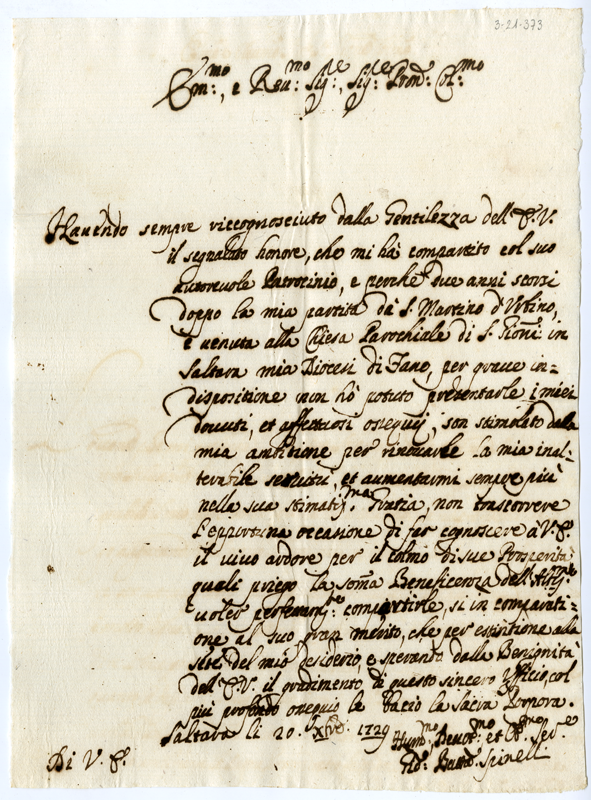 3-21-373
Em:mo, e Reu:mo Sig:re, Sig:re Pron: Col:mo
Hauendo sempre riccognosciuto dalla Gentilezza dell'E.V.
il segnalato honore, che mi hà compartito col suo
autoreuole Patrocinio, e perche due anni scorsi
doppo la mia partita dà S. Martino d'Vrbino,
e venuta alla Chiesa Parochiale di S. Gioñi: in
Saltara mia Diocesi di Fano, per graue in=
dispositione non hò potuto presentarle i miei
douuti, et affettuosi ossequij, son stimolato dalla
mia ambitione per rinouarle la mia inal=
terabile seruitù, et aumentarmi sempre più
nella sua stimatis:ma Gratia, non trascorrere
l'opportuna occasione di far cognoscere à V.E.
il viuo ardore per il colmo di sue Prosperità
quali priego la soma Beneficenza dell'
uoler compartirle, si in comparati=
one al suo gran merito, che per estintione alla
sete del mio desiderio, e sperando dalla Benignità
dell'E.V. il gradimento di questo sincero Vfficio, col
più profondo ossequio le bacio la sacra Porpora.
Saltara li 20. Xbre. 1729
Di V. E.
Hum:mo Deuot:mo et Ser:e
Spinelli